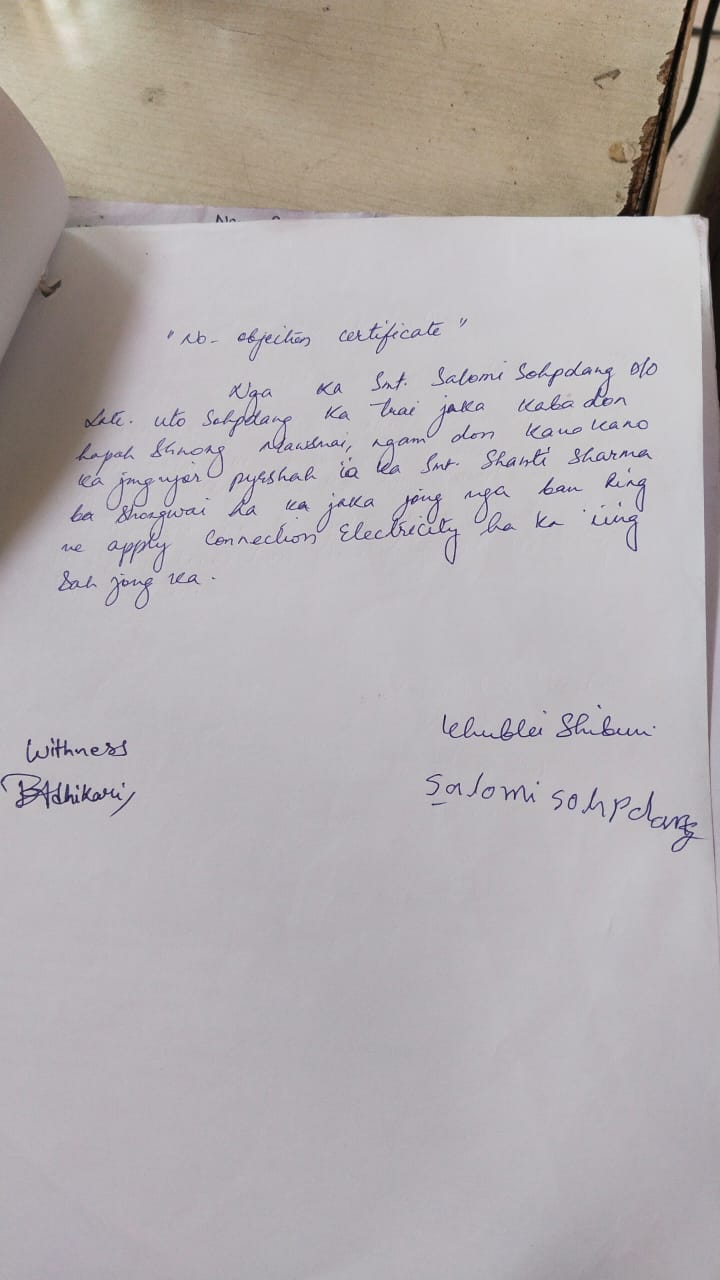 "No- objection certificate"
Nga Ka Smt. Salomi Sohpdang D/o
Late. Uto Sohpdang Ka trai jaka kaba don
hapoh Shnong Mawsmai, ngam don kano kano
ka jingujor pyrshah ia ka Smt. Shanti Sharma
ba Shongwai ha ka jaka jong nga ban Ring
ne apply Connection Electricity ha ka iing
Sah jong ka.
Khublei Shibun
Withness
BAdhikari
Salomi Sohpdang